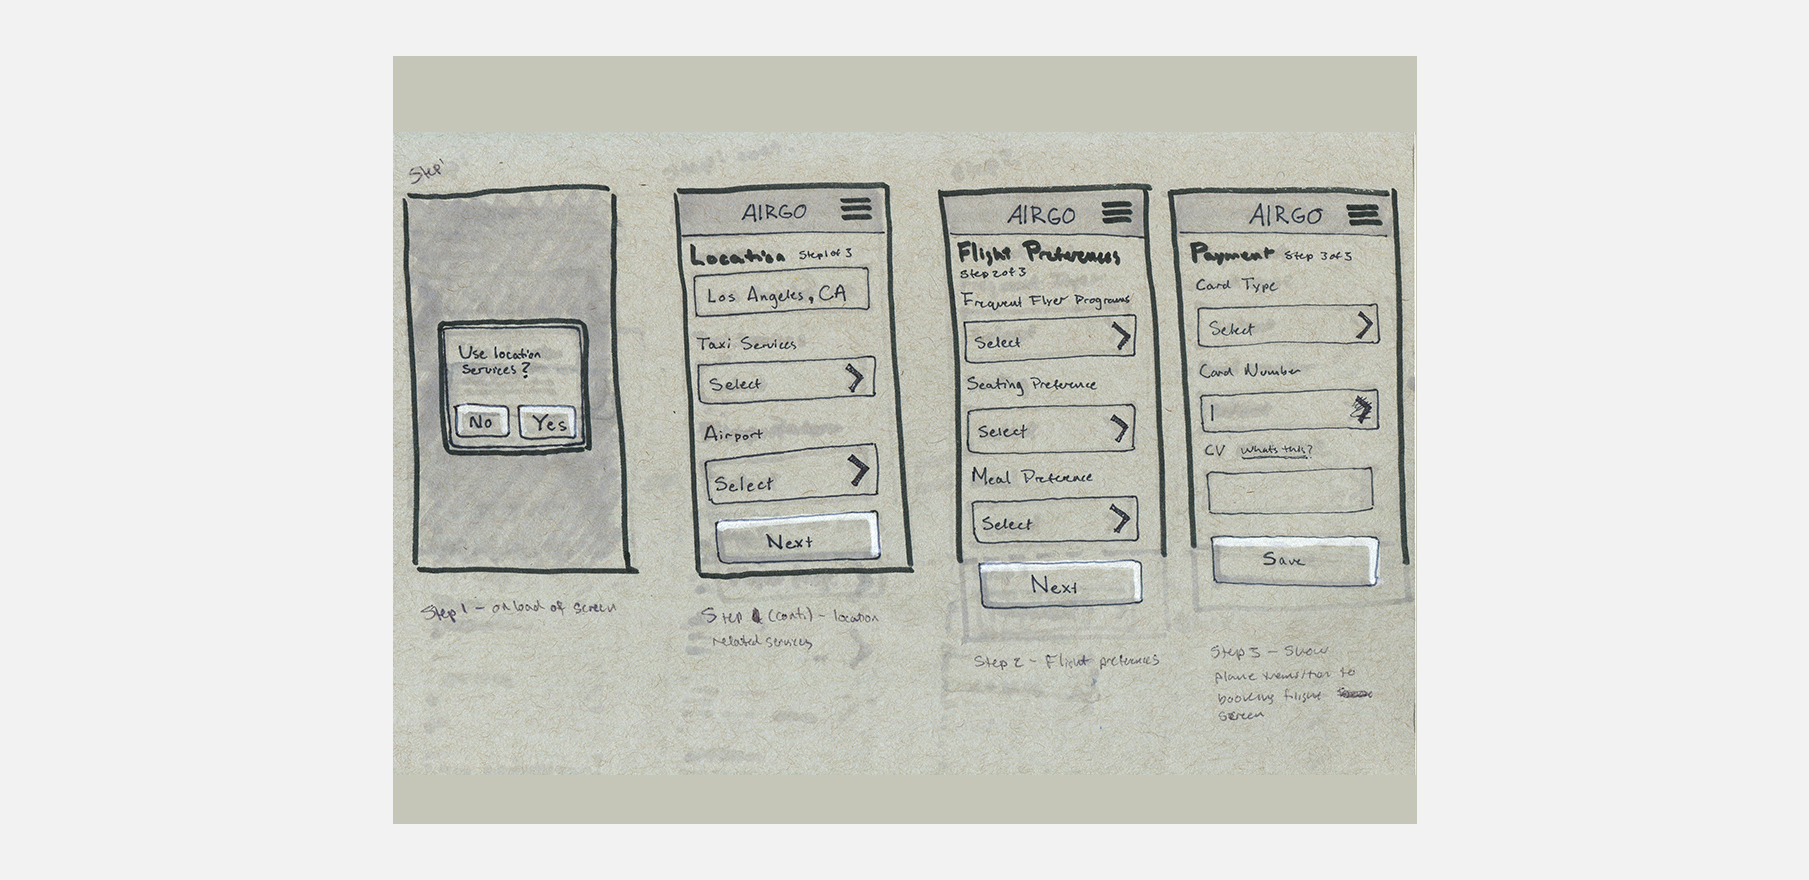 Step 1
Use location
Services?
No
Yes
Step 1 - on load of screen
AIRGO
Location Step 1 of 3
Los Angeles, CA
Taxi Services
Select
Airport
Select
Next
Step 1 (cont.) - location
related services
AIRGO
Flight Preferences
Step 2 of 3
Frequent Flyer Programs
Select
Seating Preference
Select
Meal Preference
Select
Next
Step 2 - Flight preferences
AIRGO
Payment Step 3 of 3
Card Type
Select
Card Number
CV Whats this?
Save
Step 3 - Show
plane transition to
booking flight
screen